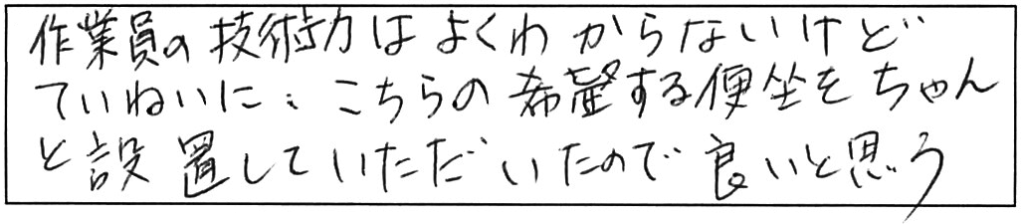 作業員の技術力はよくわからないけど
ていねいに、こちらの希望する便坐をちゃん
と設置していただいたので良いと思う